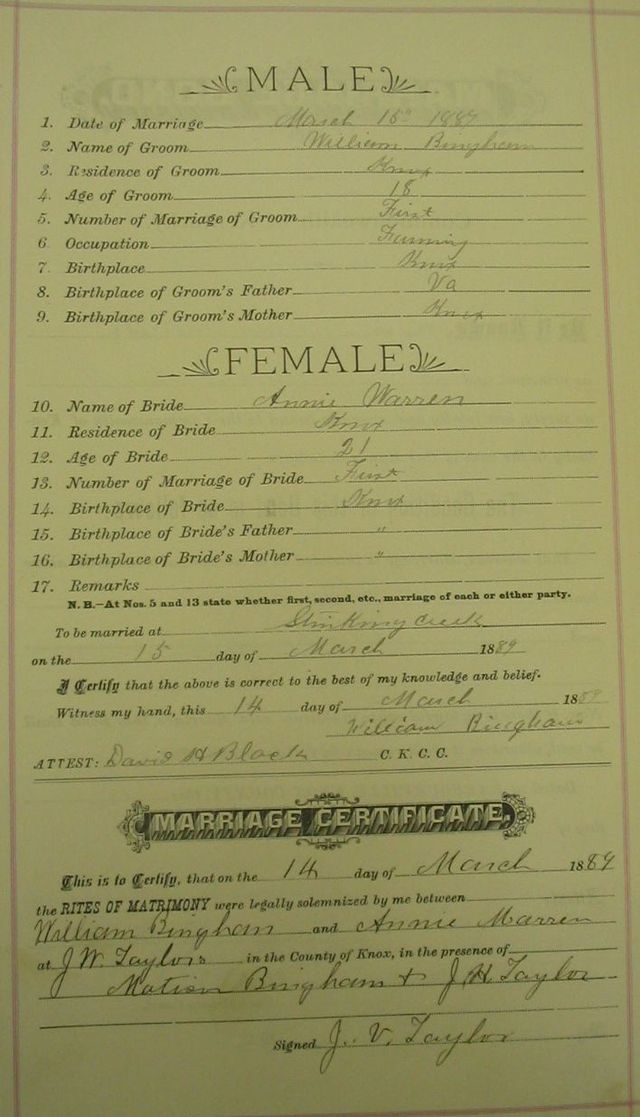 MALE
1. Date of Marriage March 15 1889
2. Name of Groom William Bingham
3. Residence of Groom Knox
4. Age of Groom 18
5. Number of Marriage of Groom First
6 Occupation Farming
7. Birthplace Knox
8. Birthplace of Groom's Father Va
9. Birthplace of Groom's Mother Knox
FEMALE
10. Name of Bride Annie Warren
11. Residence of Bride Knox
12. Age of Bride 21
13. Number of Marriage of Bride First
14. Birthplace of Bride Knox
15. Birthplace of Bride's Father "
16. Birthplace of Bride's Mother "
17. Remarks
N. B.—At Nos. 5 and 13 state whether first, second, etc., marriage of each or either party.
To be married at Stinking Creek
on the 15 day of March 1889
I Certify that the above is correct to the best of my knowledge and belief.
Witness my hand, this 14 day of March 1889
William Bingham
ATTEST: David H Black C. K. C. C.
MARRIAGE CERTIFICATE.
This is to Certify, that on the 14 day of March 1889
the RITES OF MATRIMONY were legally solemnized by me between
William Bingham and Annie Warren
at J. W. Taylors in the County of Knox, in the presence of
Bingham + J. H. Taylor
Signed J. V. Taylor